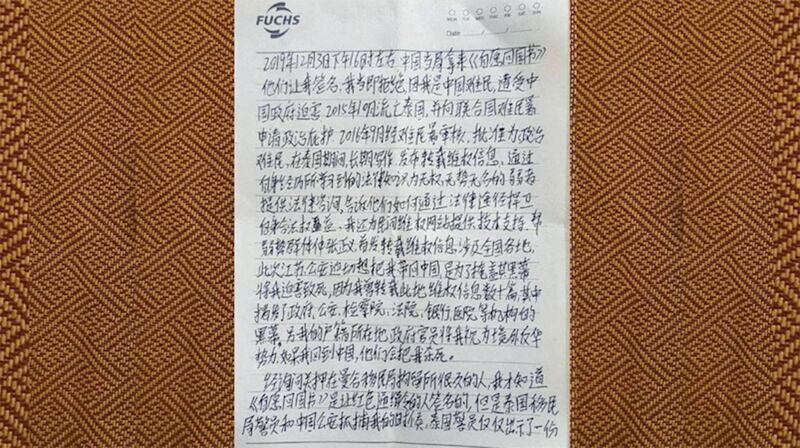 FUCHS
MON TUE WED THU FRI SAT SUN
Date / /
2019年12月3日下午16时左右 中国当局拿来《自愿回国书》
他们让我签名,我当即拒绝,因我是中国难民,遭受中
国政府迫害2015年10月流亡泰国,并向联合国难民署
申请政治庇护 2016年9月经难民署审核,批准为政治
难民,在泰国期间,长期写作,发布转载维权信息,通过
自身经历所学习到的法律知识为无权,无势无名的弱者
提供法律咨询,告诉他们如何通过法律途径捍卫
自身合法权益。我还为民间维权网站提供技术支持,帮
弱势群体伸张正义,首发转载维权信息涉及全国各地,
此次江苏公安迫切想把我带回中国,是为了掩盖其黑幕
将我迫害致死,因为我曾转载此地维权信息数十篇,其中
揭露了政府,公安,检察院,法院,银行,医院等机构的
黑幕。另我的户籍所在地政府官员将我视为境外反华
势力,如果我回到中国,他们会把我杀死。
经询问关押在曼谷移民局拘留所很久的人,我才知道
《自愿回国书》是让红色通缉令的人签名的,但是泰国移民
局警员和中国公安抓捕我的时候,泰国警员仅仅出示了一份